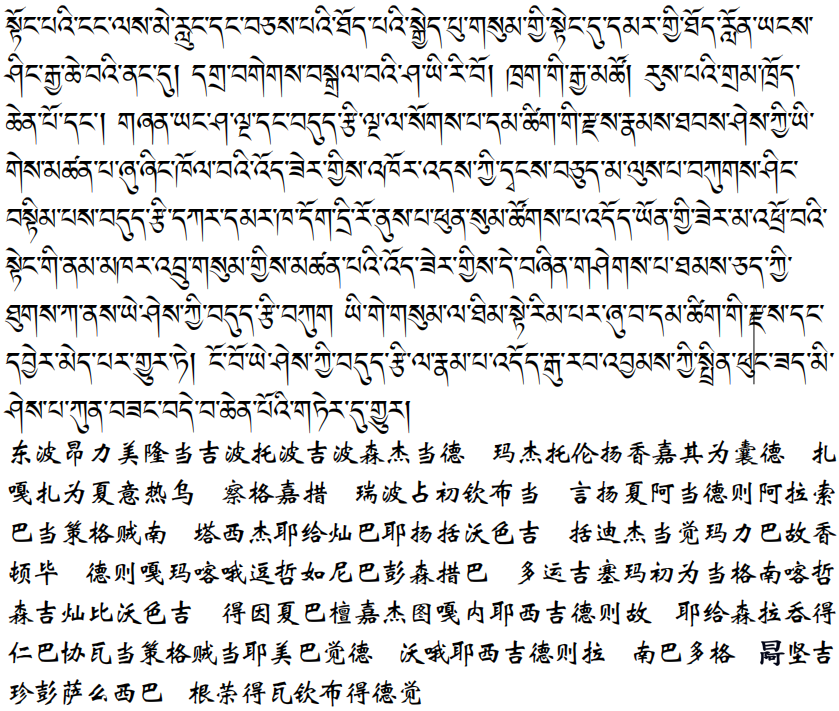 སྟོང་པའི་ངང་ལས་མེ་རླུང་དང་བཅས་པའི་ཐོད་པའི་སྒྱེད་པུ་གསུམ་གྱི་སྟེང་དུ་དམར་གྱི་ཐོད་རློན་ཡངས་
ཤིང་རྒྱ་ཆེ་བའི་ནང་དུ། དགྲ་བགེགས་བསྒྲལ་བའི་ཤ་ཡི་རི་བོ། ཁྲག་གི་རྒྱ་མཚོ། རུས་པའི་གྲམ་ཁྲོད་
ཆེན་པོ་དང་། གཞན་ཡང་ཤ་ལྔ་དང་བདུད་རྩི་ལྔ་ལ་སོགས་པ་དམ་ཚིག་གི་རྫས་རྣམས་ཐབས་ཤེས་ཀྱི་ཡི་
གེས་མཚན་པ་ཞུ་ཞིང་ཁོལ་བའི་འོད་ཟེར་གྱིས་འཁོར་འདས་ཀྱི་དྭངས་བཅུད་མ་ལུས་པ་བཀུགས་ཤིང་
བསྟིམ་པས་བདུད་རྩི་དཀར་དམར་ཁ་དོག་དྲི་རོ་ནུས་པ་ཕུན་སུམ་ཚོགས་པ་འདོད་ཡོན་གྱི་ཟེར་མ་འཕྲོ་བའི་
སྟེང་གི་ནམ་མཁར་འབྲུ་གསུམ་གྱིས་མཚན་པའི་འོད་ཟེར་གྱིས་དེ་བཞིན་གཤེགས་པ་ཐམས་ཅད་ཀྱི་
ཐུགས་ཀ་ནས་ཡེ་ཤེས་ཀྱི་བདུད་རྩི་བཀུག ཡི་གེ་གསུམ་ལ་ཐིམ་སྟེ་རིམ་པར་ཞུ་བ་དམ་ཚིག་གི་རྫས་དང་
དབྱེར་མེད་པར་གྱུར་ཏེ། ངོ་བོ་ཡེ་ཤེས་ཀྱི་བདུད་རྩི་ལ་རྣམ་པ་འདོད་རྒུ་རབ་འབྱམས་ཀྱི་སྤྲིན་ཕུང་ཟད་མི་
ཤེས་པ་ཀུན་བཟང་བདེ་བ་ཆེན་པོའི་གཏེར་དུ་གྱུར།
东波昂力美隆当吉波托波吉波森杰当德 玛杰托伦扬香嘉其为囊德 扎
嘎扎为夏意热乌 察格嘉措 瑞波占初钦布当 言扬夏阿当德则阿拉索
巴当策格贼南 塔西杰耶给灿巴耶扬括沃色吉 括迪杰当觉玛力巴故香
顿毕 德则嘎玛喀哦逗哲如尼巴彭森措巴 多运吉塞玛初为当格南喀哲
森吉灿比沃色吉 得因夏巴檀嘉杰图嘎内耶西吉德则故 耶给森拉吞得
仁巴协瓦当策格贼当耶美巴觉德 沃哦耶西吉德则拉 南巴多格 坚吉
珍彭萨么西巴 根荣得瓦钦布得德觉